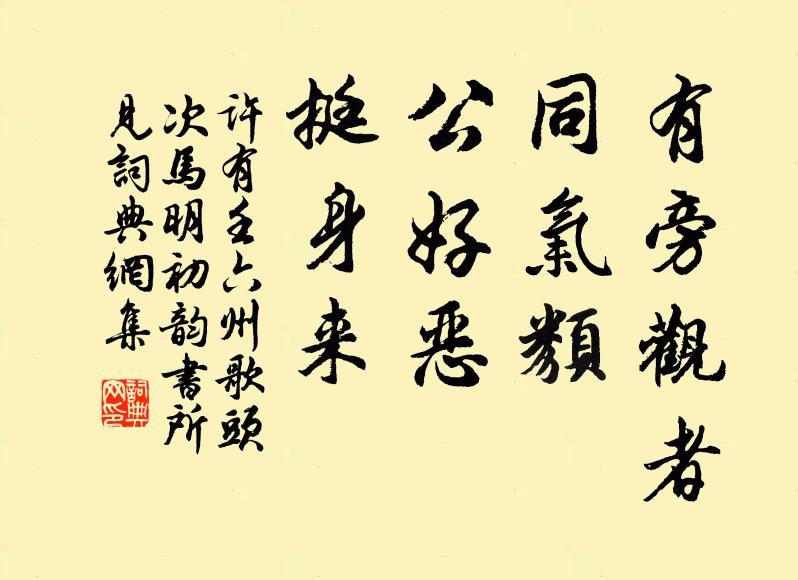 有旁觀者
同氣類
公好惡
挺身来
許有壬六州歌頭
次馬明初韵書所
見詞典網集
詞典
网印